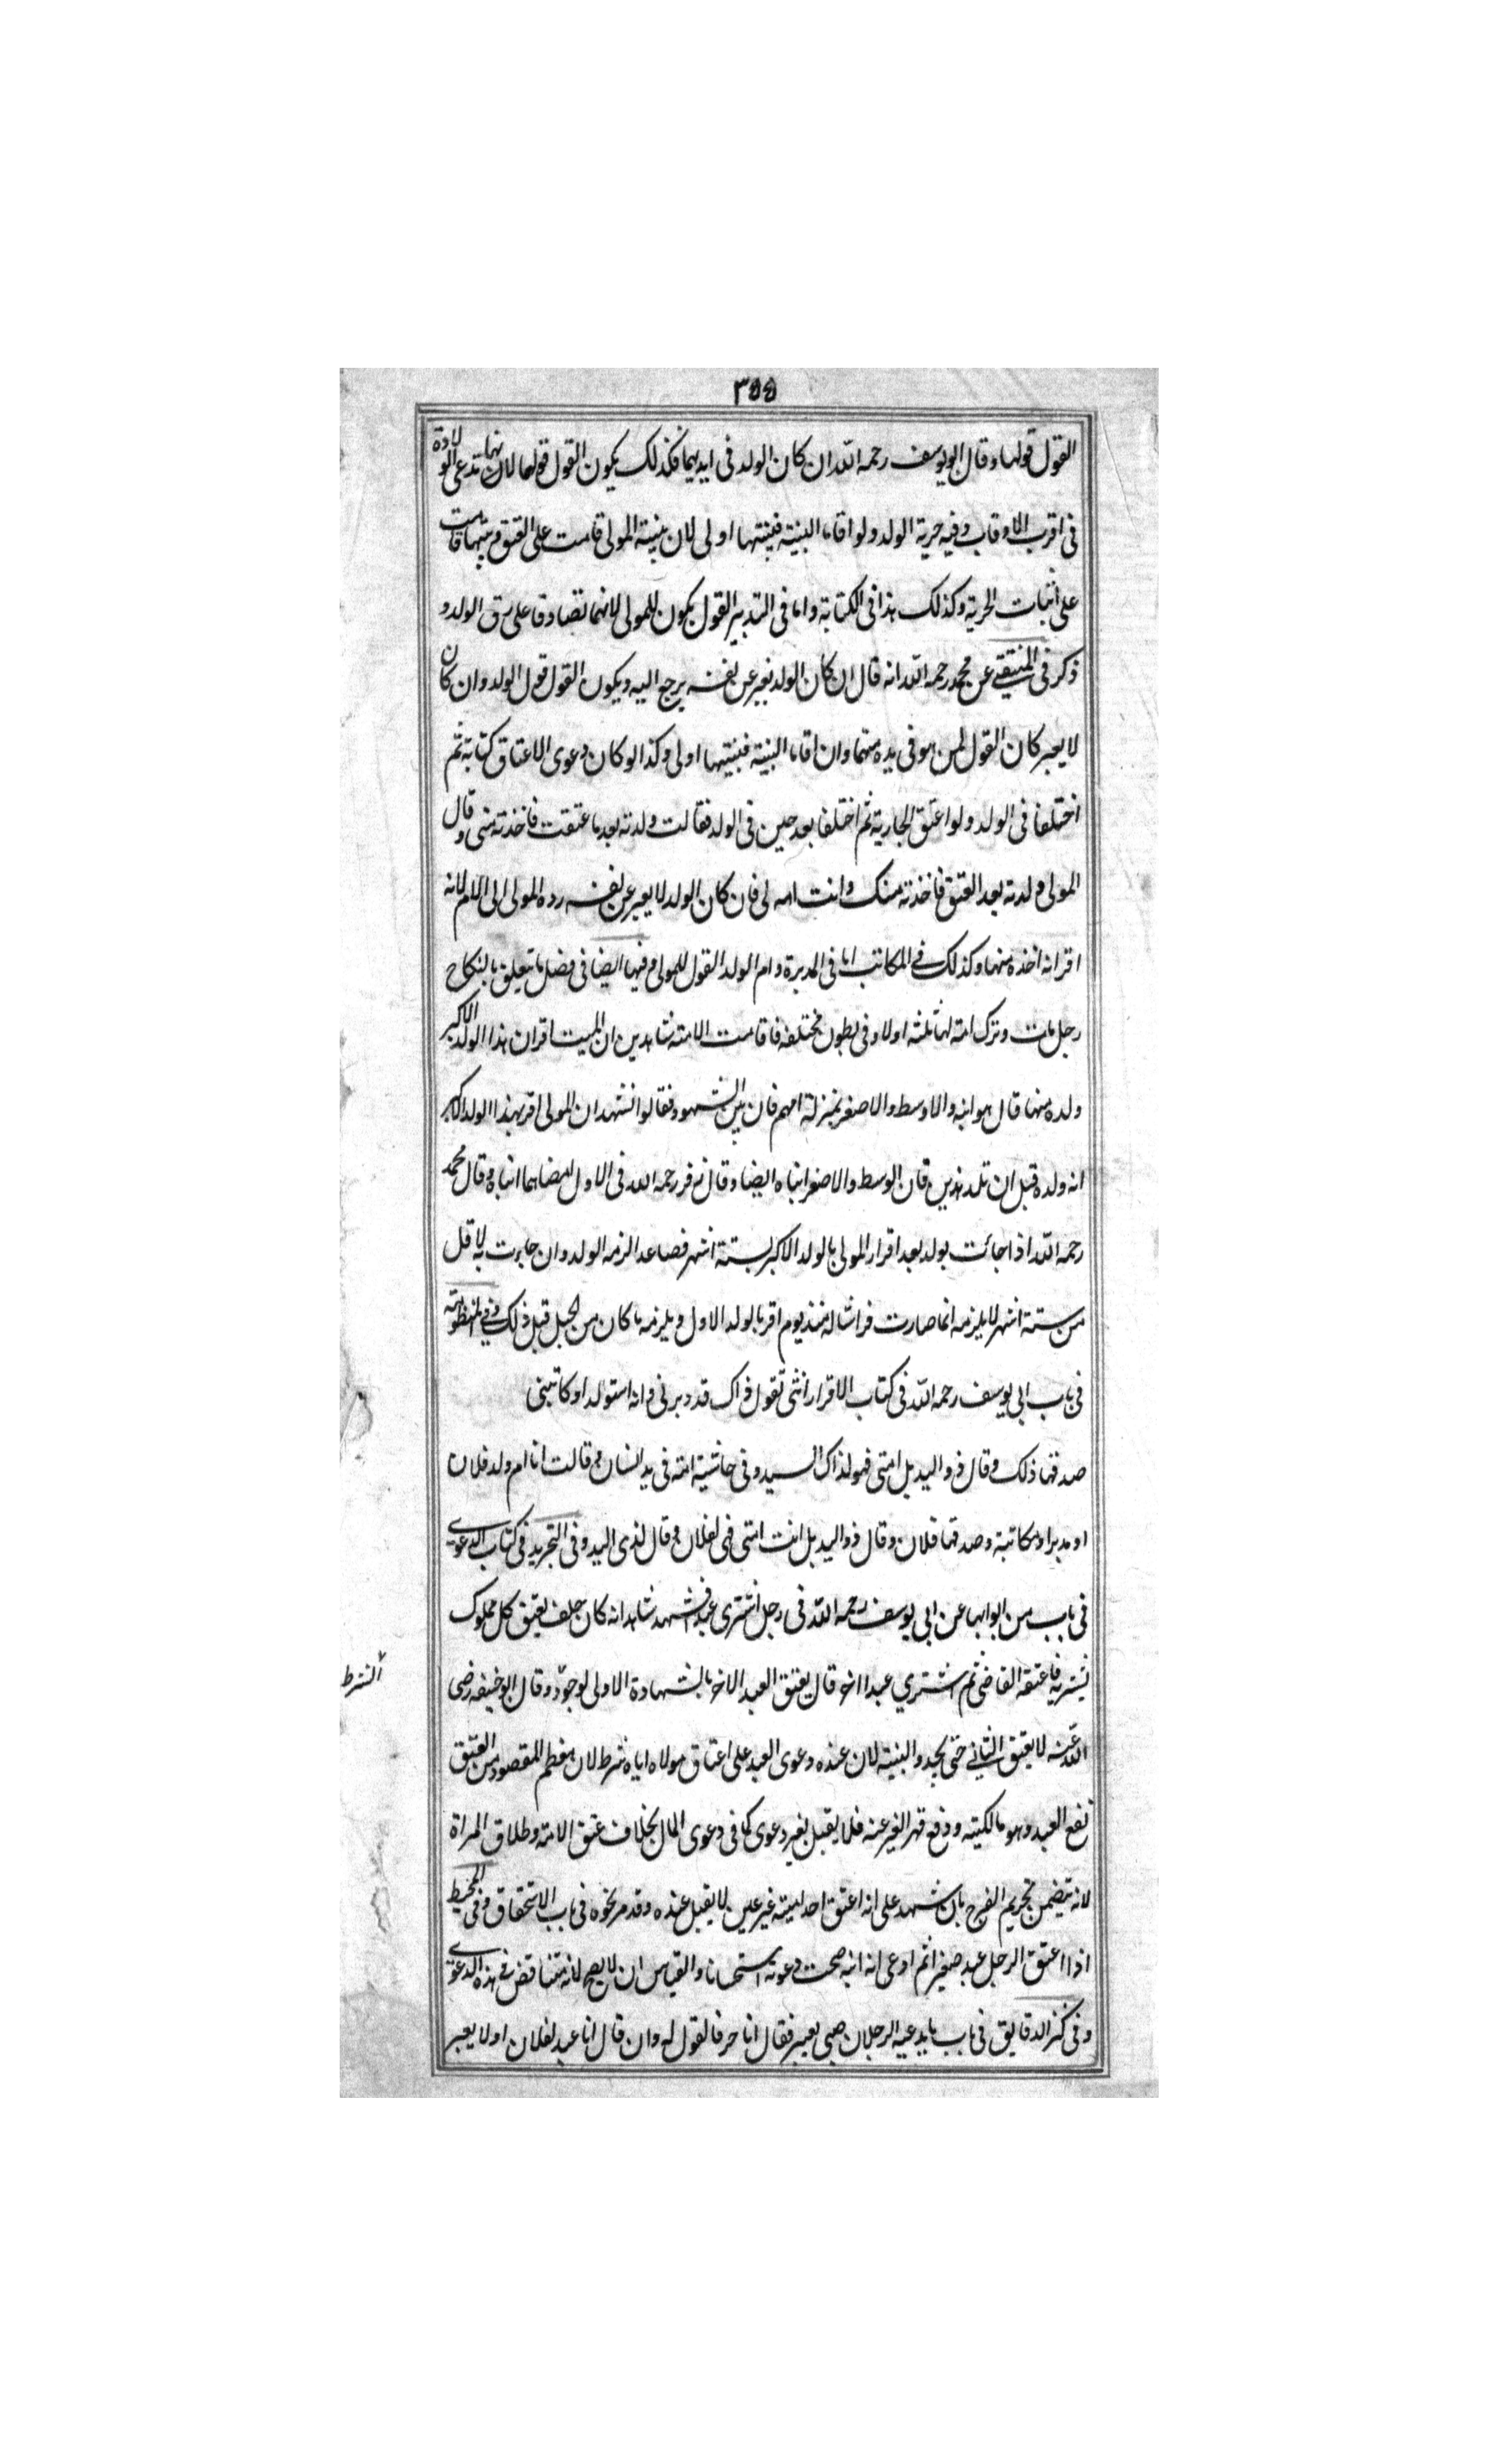 ٣٥٥
القول قولها وقال ابو يوسف رحمه الله ان كان الولد فى ايديهما فكذلك يكون القول قولها لانها تدعى الولادة
فى اقرب الاوقات وفيه حرية الولد ولو اقاما البينة فبينتها اولى لان بينة المولى قامت على العتق وبينتها قامت
على اثبات الحرية وكذلك هذا فى الكتابة واما فى التدبير القول يكون للمولى لانهما تصادقا على رق الولد و
ذكر فى المنتقى عن محمد رحمه الله انه قال ان كان الولد يعبر عن نفسه يرجع اليه ويكون القول قول الولد وان كان
لا يعبر كان القول لمن هو فى يده منهما وان اقاما البينة فبينتها اولى وكذا لو كان دعوى الاعتاق كتابة ثم
اختلفا فى الولد ولو اعتق الجارية ثم اختلفا بعد حين فى الولد فقالت ولدته بعد ما عتقت فاخذته منى وقال
المولى ولدته بعد العتق فاخذته منك وانت امه لى فان كان الولد لا يعبر عن نفسه رده المولى الى الام لانه
اقر انه اخذه منها وكذلك فى المكاتب اما فى المدبرة وام الولد القول للمولى وفيها ايضا فى فصل ما يتعلق بالنكاح
رجل مات وترك امة لها ثلثة اولاد فى بطون مختلفة فاقامت الامة شاهدين ان الميت اقر ان هذا الولد الاكبر
ولده منها قال هو ابنه والاوسط والاصغر بمنزلة امهم فان بين الشهود فقالوا نشهد ان المولى اقر بهذا الولد الاكبر
انه ولده قبل ان تلد هذين فان الوسط والاصغر ابناه ايضا وقال زفر رحمه الله فى الاول ايضا هما ابناه وقال محمد
رحمه الله اذا جائت بولد بعد اقرار المولى بالولد الاكبر لستة اشهر فصاعدا لزمه الولد وان جاءت به لاقل
من ستة اشهر لا يلزمه انما صارت فراشا له منذ يوم اقر بالولد الاول ويلزمه ما كان من الحبل قبل ذلك وفى المنظومة
فى باب ابى يوسف رحمه الله فى كتاب الاقرار انثى تقول ذاك قد دبرنى وانه استولد او كاتبنى
صدقها ذلك وقال ذو اليد بل امتى فهو لذاك السيد وفى حاشية امة فى يد انسان وقالت انا ام ولد فلان
او مدبرا ومكاتبة وصدقها فلان وقال ذو اليد بل انت امتى فهى لفلان وقال لذى اليد وفى التجريد فى كتاب الدعوى
فى باب من ابوابها عن ابى يوسف رحمه الله فى رجل اشترى عبدا فشهد شاهد انه كان حلف يعتق كل مملوك
يشتريه فاعتقه القاضى ثم اشترى عبدا اخر قال يعتق العبد الاخر بالشهادة الاولى لوجود وقال ابو حنيفه رضى
الشرط
الله عنه لا يعتق الثانى حتى يجدد البينة لان عنده دعوى العبد على اعتاق مولاه اياه شرط لان معظم المقصود من العتق
نفع العبد وهو مالكيته ودفع قهر الغير عنه فلا يقبل بغير دعوى كما فى دعوى المال بخلاف عتق الامة وطلاق المراة
لانه يتضمن تحريم الفرج بان شهد على انه اعتق احد امتيه غير عين لا يقبل عنده وقد مر نحوه فى باب الاستحقاق وفى المحيط
اذا اعتق الرجل عبد صغيرا ثم ادعى انه ابنه صحت دعوته استحسانا والقياس ان لا يصح لانه متناقض فى هذه الدعوى
وفى كنز الدقايق فى باب ما يدعيه الرجلان صبى يعبر فقال انا حر فالقول له وان قال انا عبد لفلان او لا يعبر